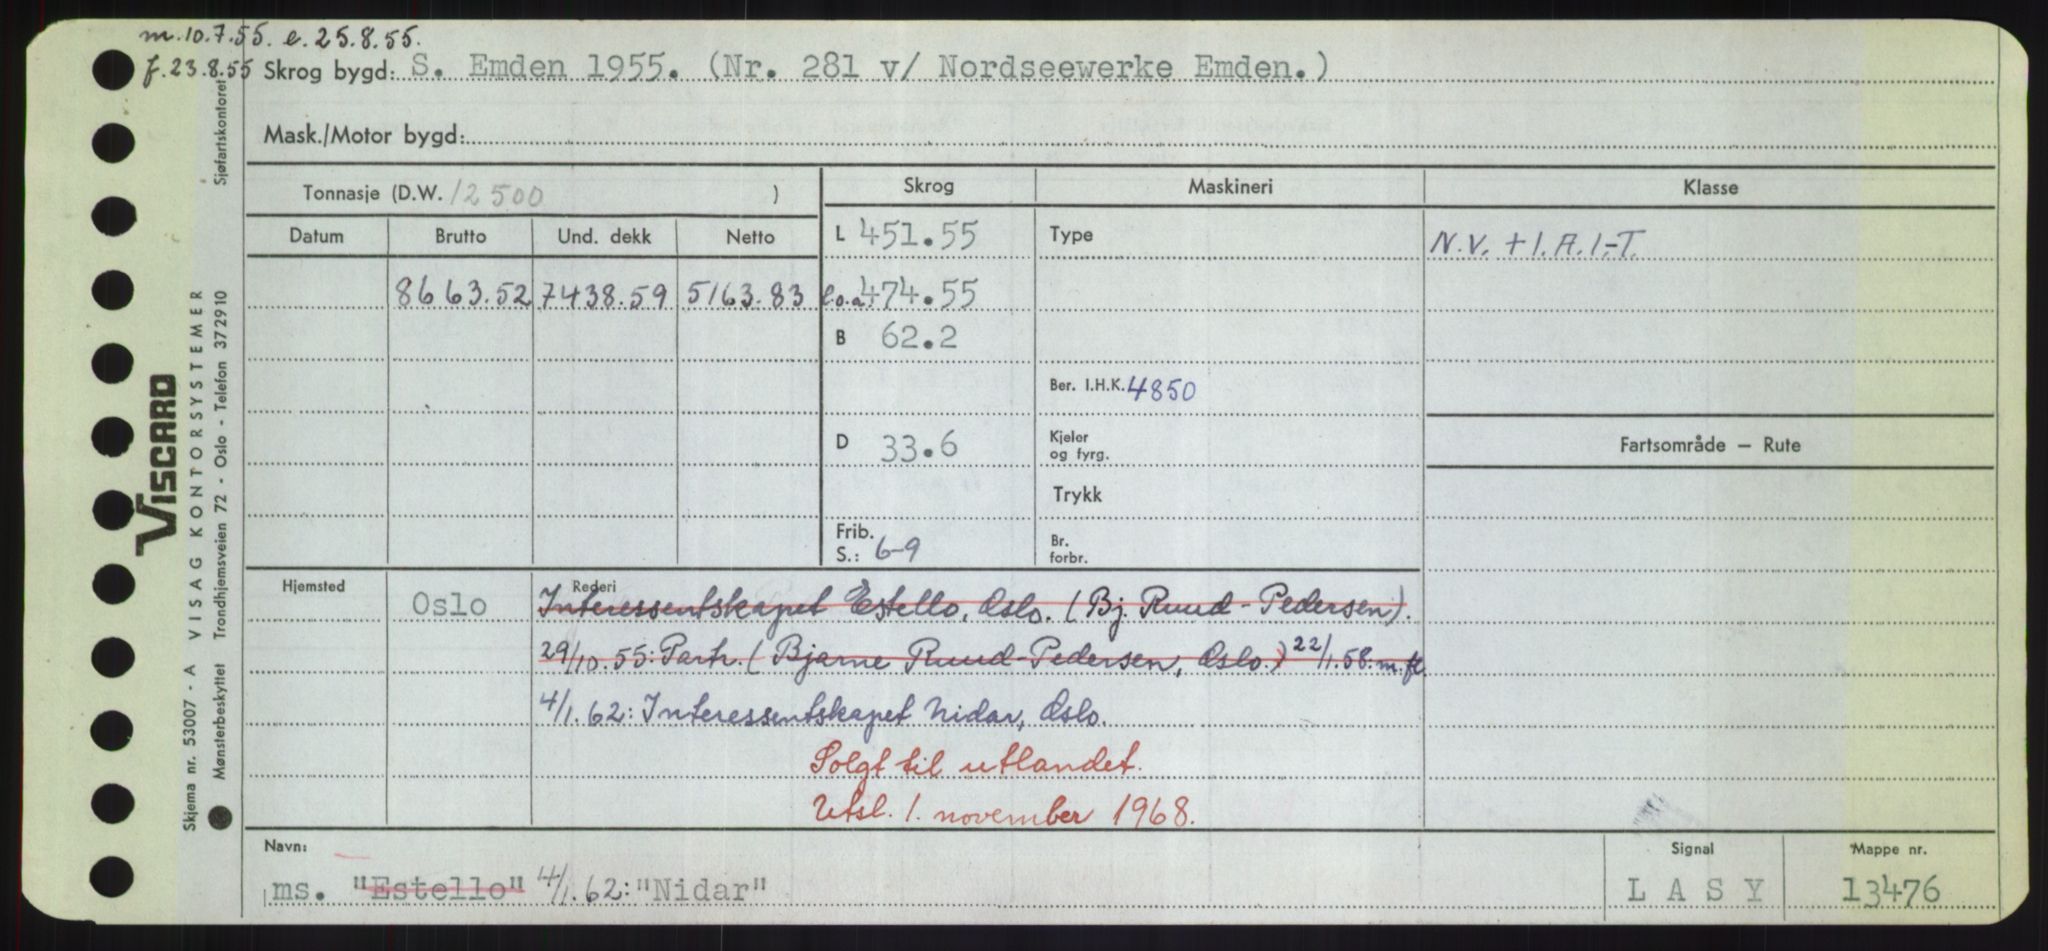 m. 10.7.55. e. 25.8.55.
f. 23.8.55 Skrog bygd: S. Emden 1955. (Nr. 281 v/ Nordseewerke Emden.)
Mask./Motor bygd:
Tonnasje (D.W. 12500 )
Skrog
Maskineri
Klasse
Datum Brutto Und. dekk Netto
L 451.55
Type
N.V. +1.A.1.-T.
8663.52 7438.59 5163.83
l.o.a. 474.55
B 62.2
Ber. I.H.K. 4850
D 33.6
Kjeler
og fyrg.
Fartsområde — Rute
Trykk
Frib.
S.: 6-9
Br.
forbr.
Hjemsted
Oslo
Rederi
Interessentskapet Estello, Oslo. (Bj. Ruud-Pedersen).
29/10.55: Partr. (Bjarne Ruud-Pedersen, Oslo.) 22/1.58. m.fl.
4/1.62: Interessentskapet Nidar, Oslo.
Solgt til utlandet.
Utsl. 1. november 1968.
Navn:
ms. "Estello" 4/1.62: "Nidar"
Signal
LASY
Mappe nr.
13476
VISCARD
Skjema nr. 53007 - A VISAG KONTORSYSTEMER
Mønsterbeskyttet Trondhjemsveien 72 - Oslo - Telefon 372910 Sjøfartskontoret